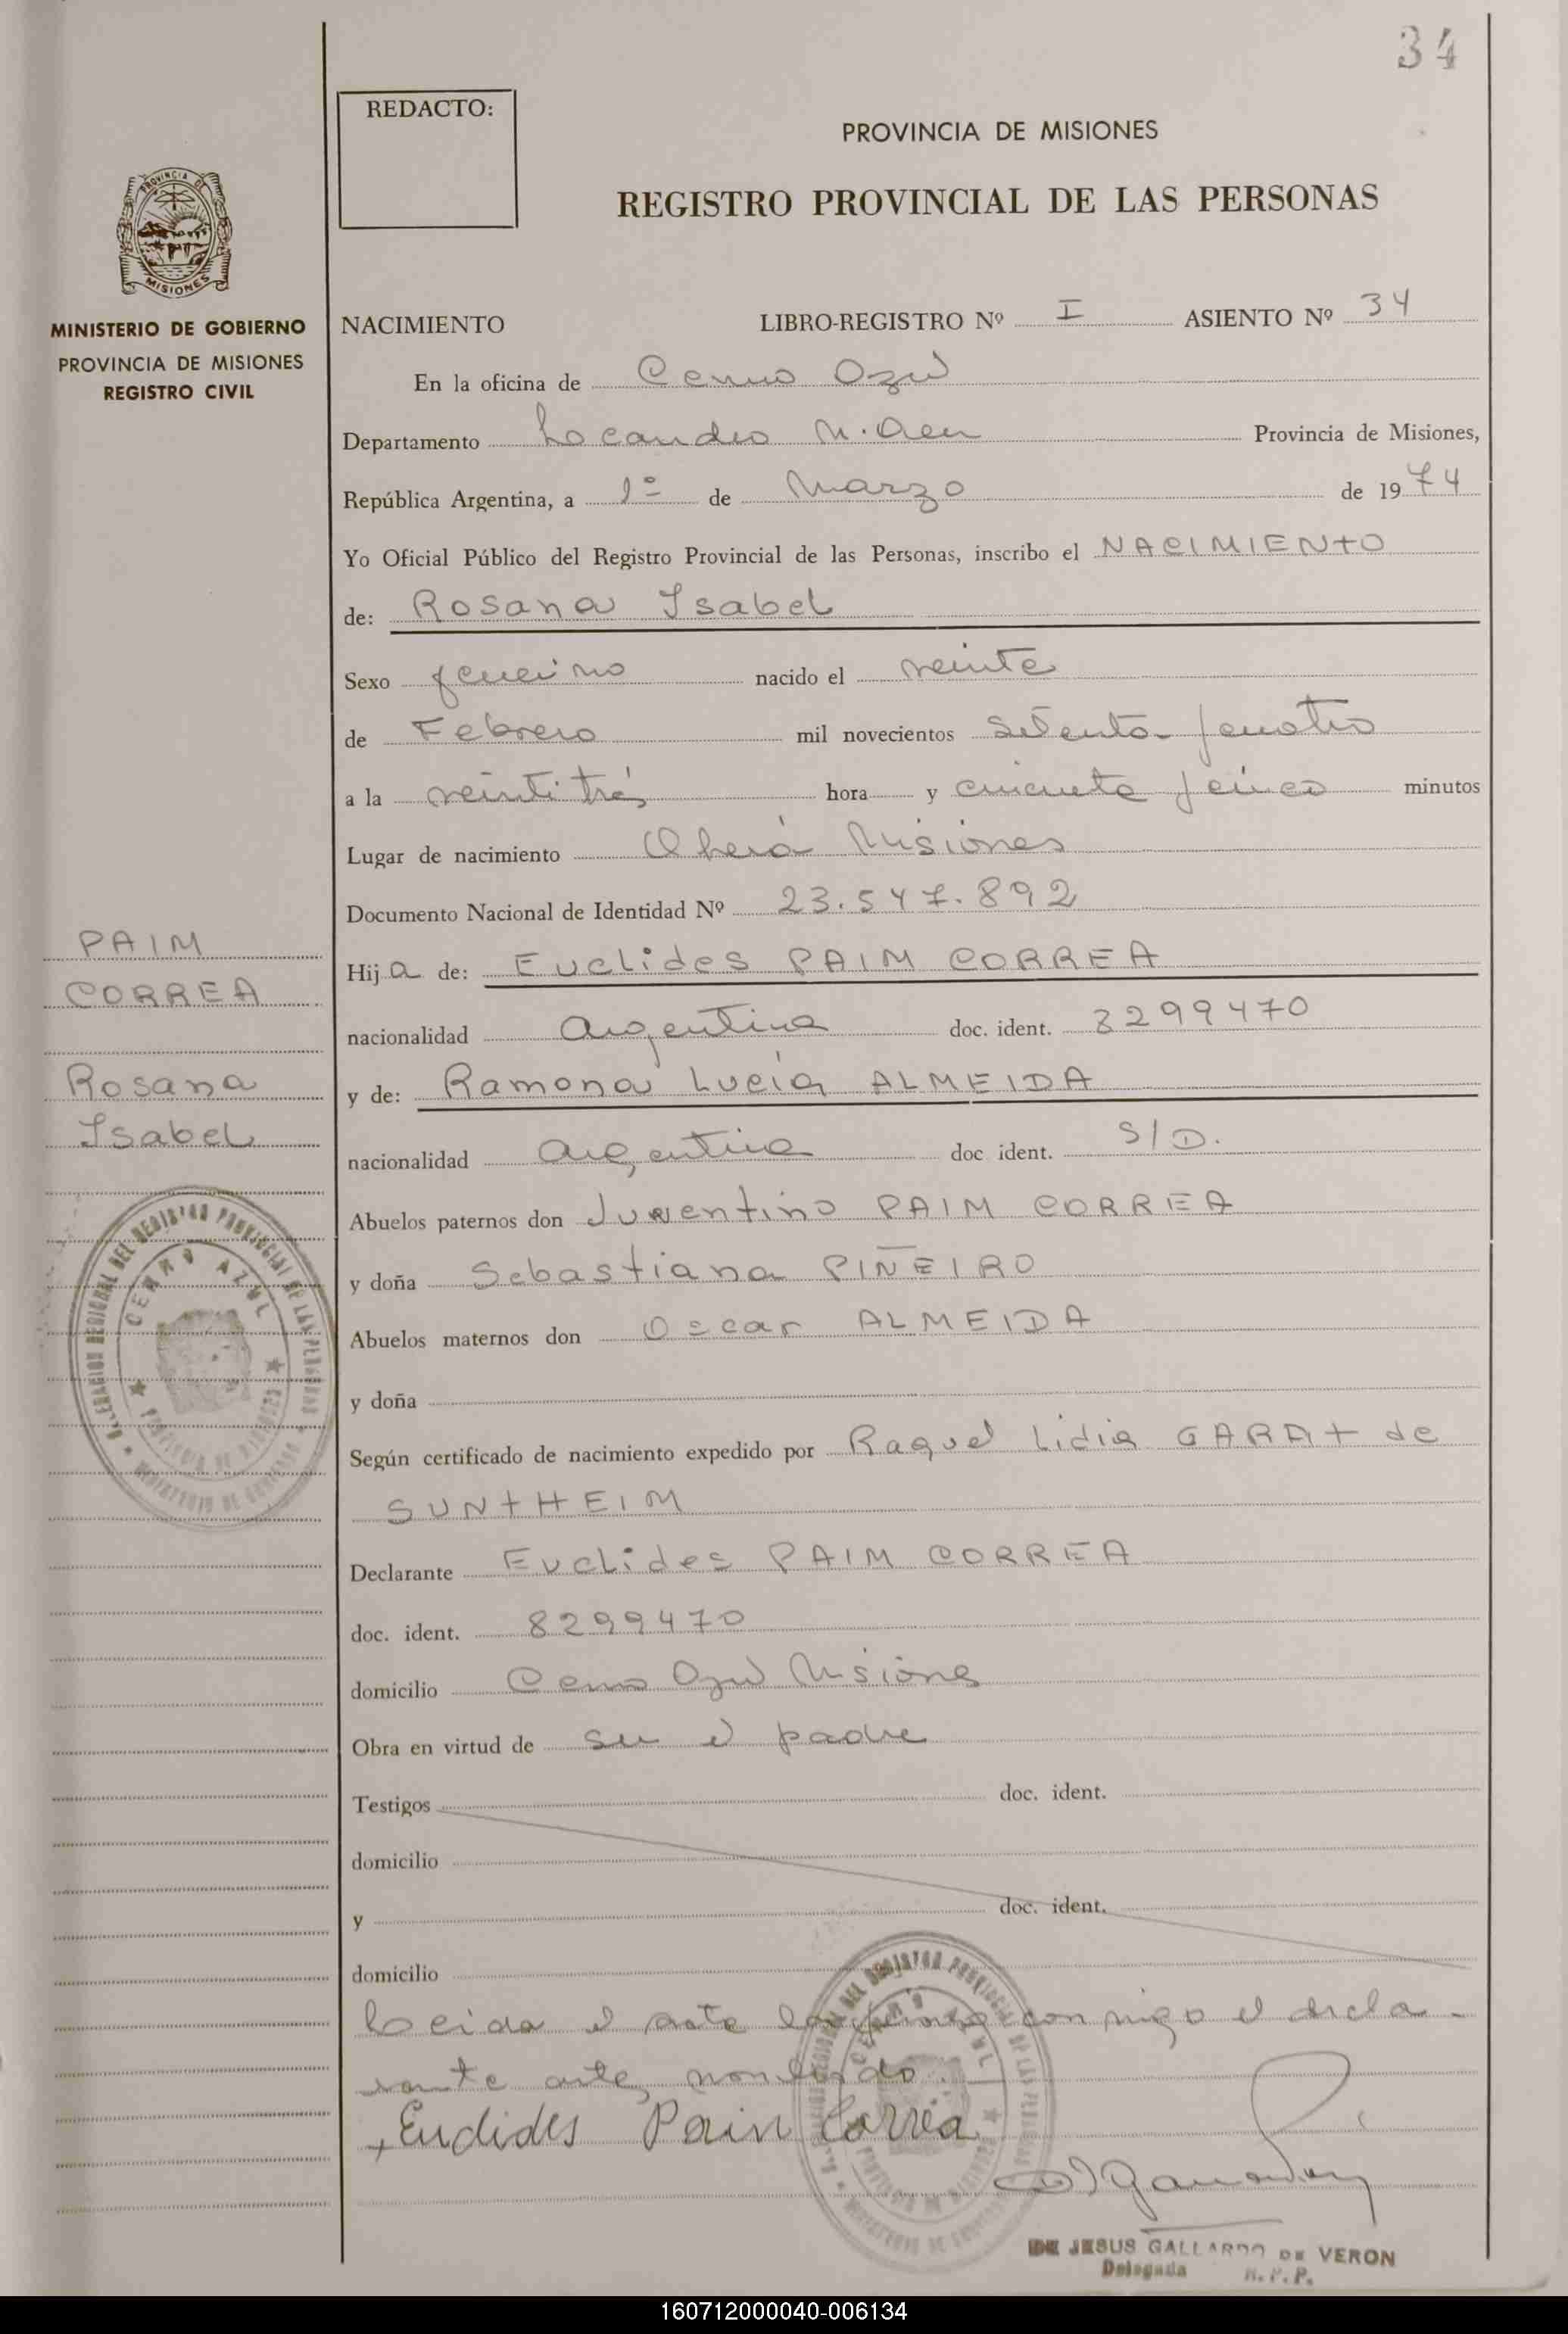 34
REDACTO:
PROVINCIA DE MISIONES
REGISTRO PROVINCIAL DE LAS PERSONAS
PROVINCIA DE
MISIONES
MINISTERIO DE GOBIERNO
PROVINCIA DE MISIONES
REGISTRO CIVIL
NACIMIENTO LIBRO-REGISTRO Nº I ASIENTO Nº 34
En la oficina de Cerro Azul
Departamento Leandro N. Alem Provincia de Misiones,
República Argentina, a 1º de Marzo de 1974
Yo Oficial Público del Registro Provincial de las Personas, inscribo el NACIMIENTO
de: Rosana Isabel
Sexo femenino nacido el veinte
de Febrero mil novecientos setenta y cuatro
a la veintitrés hora y cincuenta y cinco minutos
Lugar de nacimiento Oberá Misiones
Documento Nacional de Identidad Nº 23.547.892
PAIM
CORREA
Rosana
Isabel
Hija de: Euclides PAIM CORREA
nacionalidad Argentina doc. ident. 8299470
y de: Ramona Lucía ALMEIDA
nacionalidad Argentina doc ident. S/D.
Abuelos paternos don Juventino PAIM CORREA
y doña Sebastiana PIÑEIRO
Abuelos maternos don Oscar ALMEIDA
y doña
Según certificado de nacimiento expedido por Raquel Lidia GARAT de
SUNTHEIM
Declarante Euclides PAIM CORREA
doc. ident. 8299470
domicilio Cerro Azul Misiones
Obra en virtud de ser el padre
Testigos doc. ident.
domicilio
y doc. ident.
domicilio
Leida el acta la firma conmigo el decla-
rante antes nombrado.
Euclides Pain Correa
CERRO AZUL
DE JESUS GALLARDO DE VERON
Delegada R.P.P.
160712000040-006134